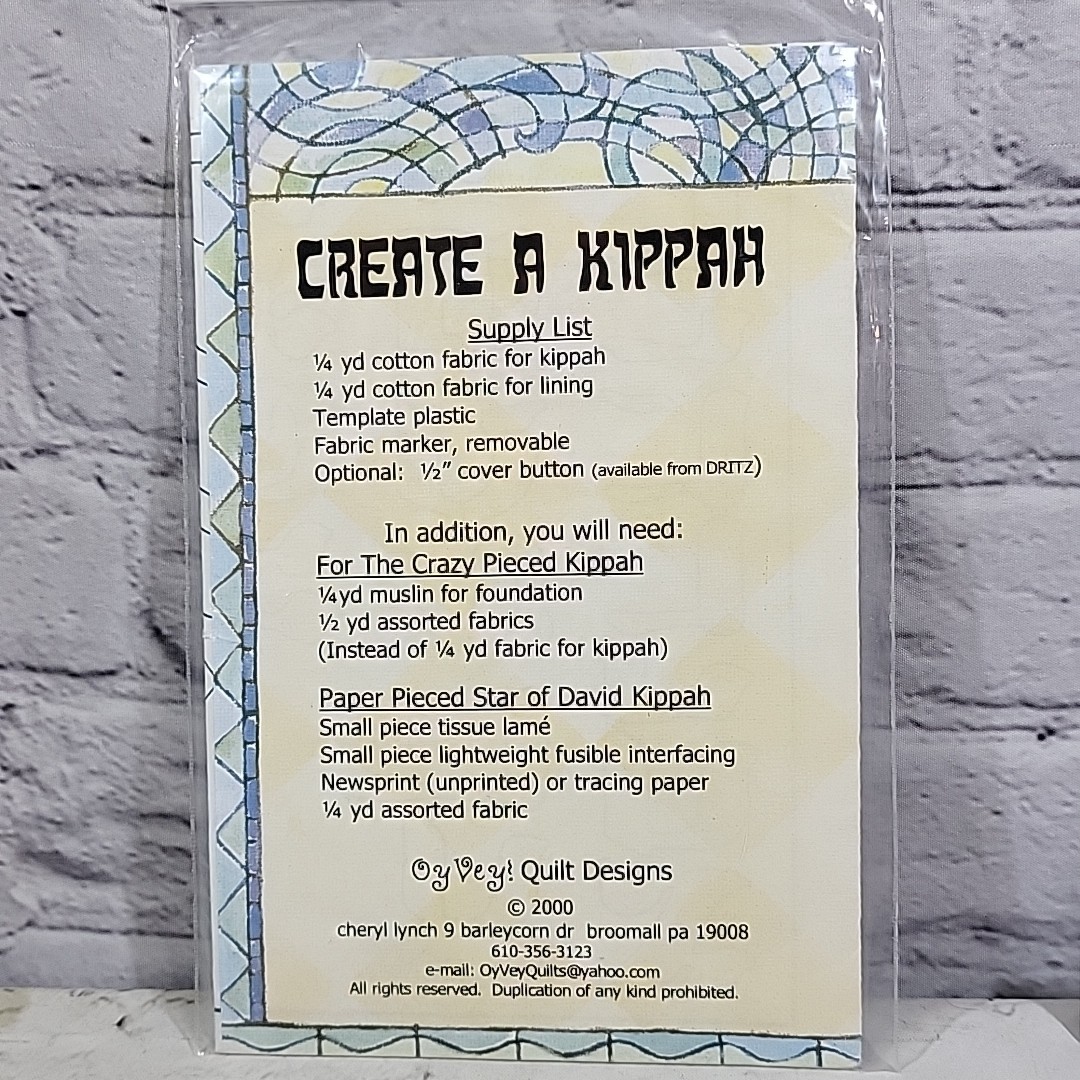 CREATE A KIPPAH
Supply List
¼ yd cotton fabric for kippah
¼ yd cotton fabric for lining
Template plastic
Fabric marker, removable
Optional: ½" cover button (available from DRITZ)
In addition, you will need:
For The Crazy Pieced Kippah
¼yd muslin for foundation
½ yd assorted fabrics
(Instead of ¼ yd fabric for kippah)
Paper Pieced Star of David Kippah
Small piece tissue lamé
Small piece lightweight fusible interfacing
Newsprint (unprinted) or tracing paper
¼ yd assorted fabric
Oy Vey! Quilt Designs
© 2000
cheryl lynch 9 barleycorn dr broomall pa 19008
610-356-3123
e-mail: OyVeyQuilts@yahoo.com
All rights reserved. Duplication of any kind prohibited.